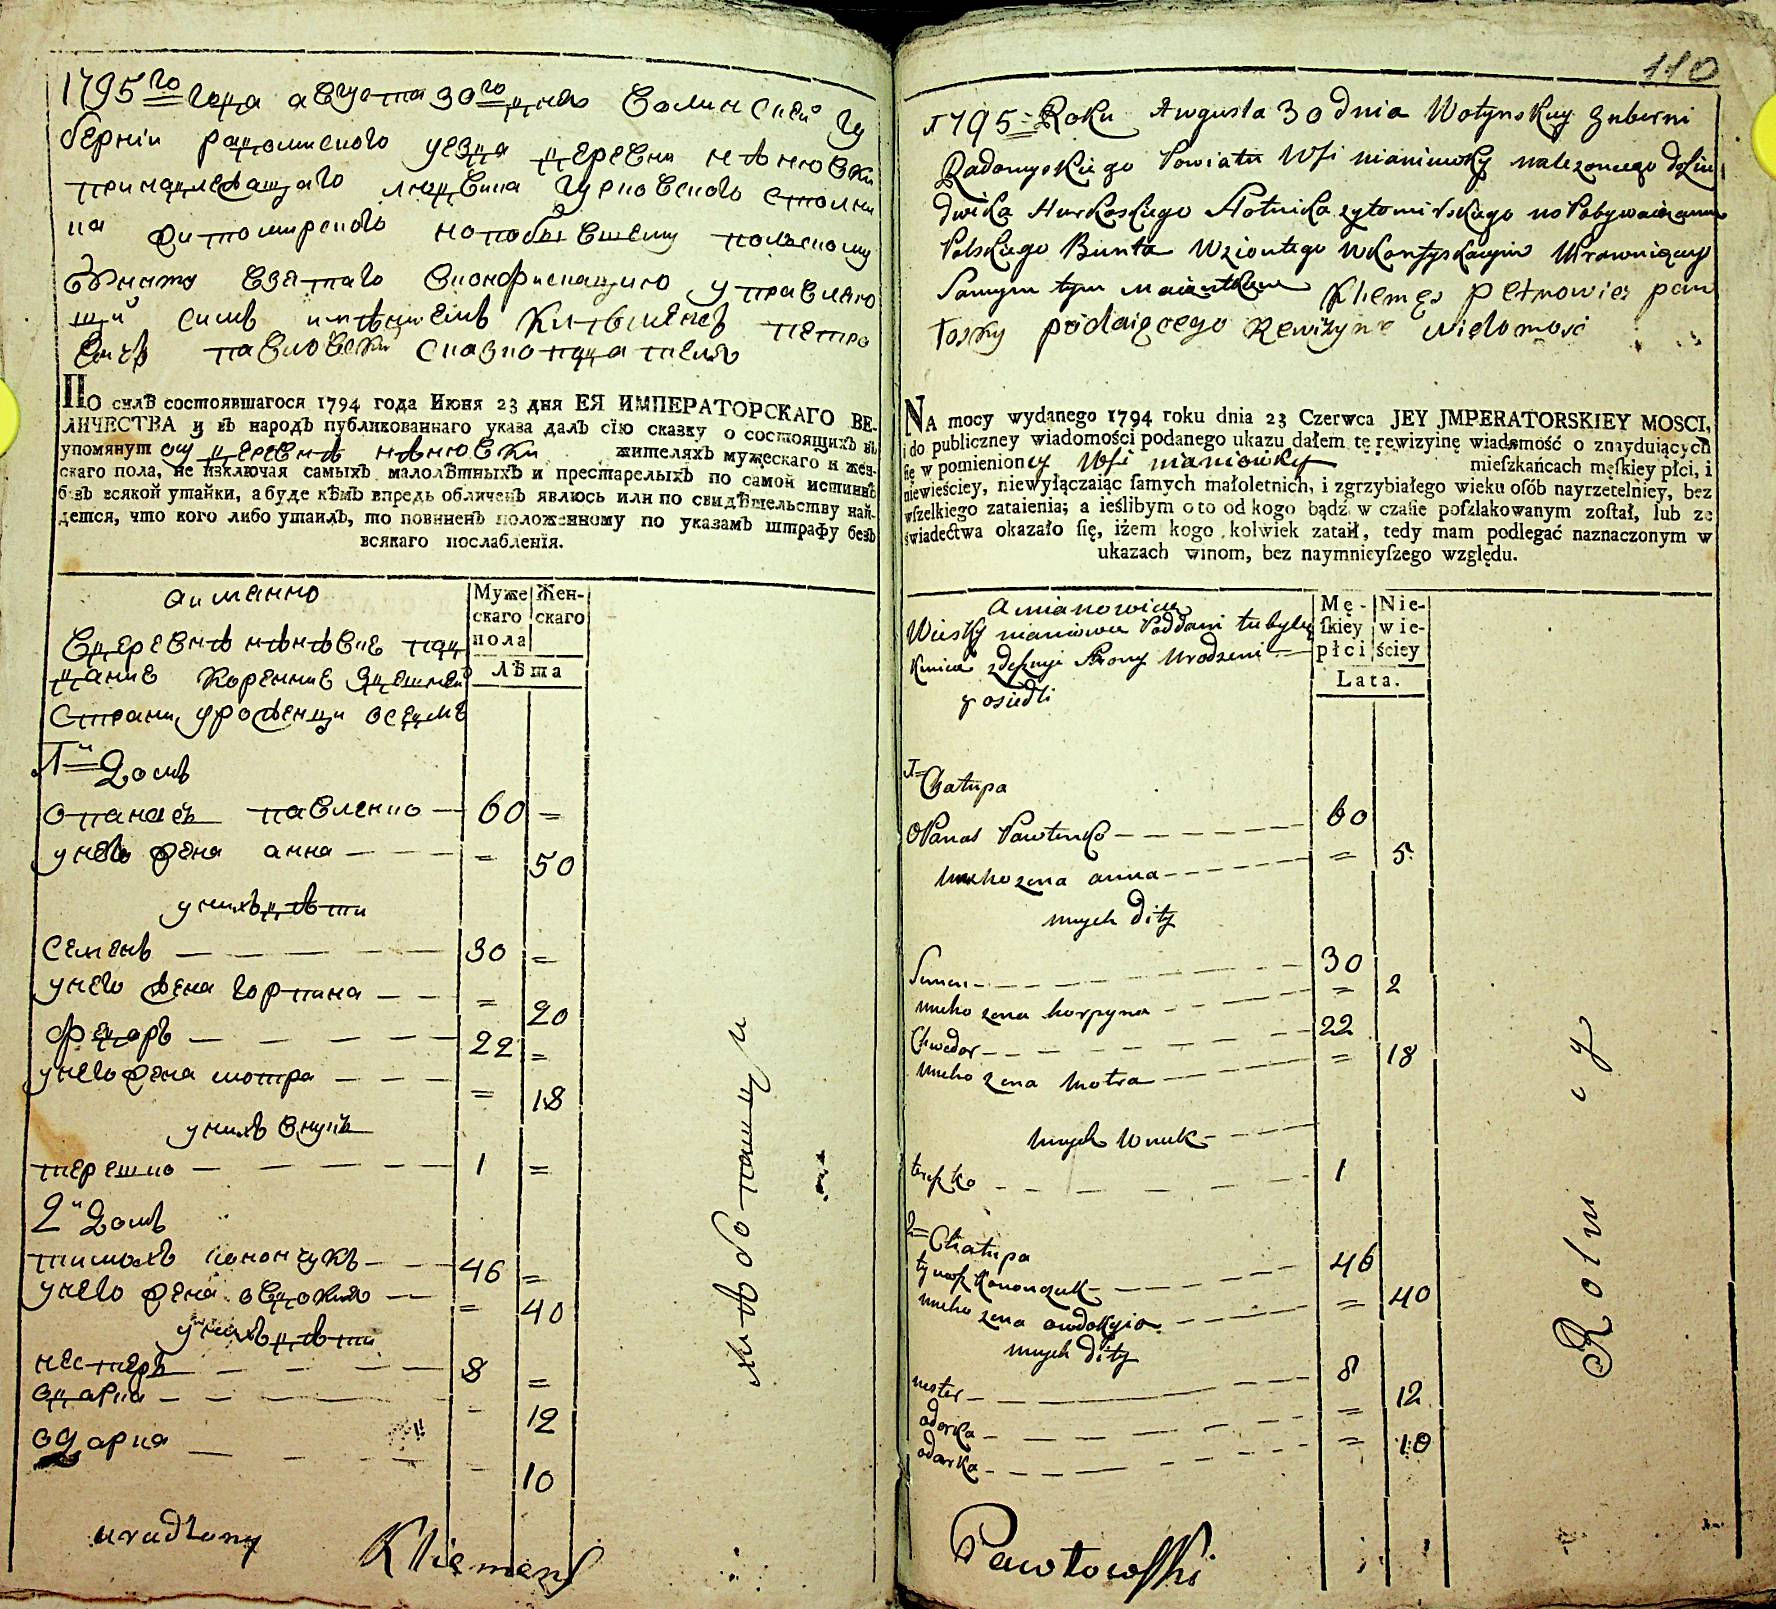 1795го года августа 30го дня Волинской гу
берніи радомиского уезда деревни нѣнювки
принадлежащаго людвика гурковского столни
ка житомирского по побывшему полскому
бунту взятаго вконфискацию управляю
щій симъ имѣниемъ Климѣнсъ петро
вичъ павловскій сказкоподатель
ПО силѣ состоявшагося 1794 года Июня 23 дня ЕЯ ИМПЕРАТОРСКАГО ВЕ-
ЛИЧЕСТВА и въ народъ публикованнаго указа далъ сїю сказку о состоящихъ въ
упомянутой деревнѣ нѣнювки жителяхъ мужескаго и жен-
скаго пола, не изключая самыхъ малолѣтныхъ и престарелыхъ по самой истиннѣ
безъ всякой утайки, а буде кѣмъ впредь обличенъ явлюсь или по свидѣтельству най-
дется, что кого либо утаилъ, то повиненъ положенному по указамъ штрафу безъ
всякаго послабленїя.
а именно
Муже Жен-
скаго скаго
пола
Лѣта
Вдеревнѣ нѣнѣвке под
дание коренние здешней
страни урожѣнци оседлѣ
1й Домъ
опанасъ павленко — 60 =
унего жена анна — = 50
унихъ дѣти
семенъ — 30 =
унего жена горпина — = 20
федоръ — 22 =
унего жена мотра — = 18
унихъ внукъ
терешко — 1 =
2й Домъ
тимохъ конончукъ — 46 =
унего жена овдокия — = 40
унихъ дѣти
нестеръ — 8 =
одарка — - 12
одарка — - 10
хлѣбопашци
urodzony Kliemens
110
1795 = Roku Awgusta 30 dnia Wołynskiy Guberni
Radomyskiego Powiatu Wsi nianiowky należoncego do Liu
dwika Hurkoskiego Stolnika zytomirskiego
Polskiego Bunta Wziontego
Samym tym maiontkem Klemęs petrowicz paw
łosky podaiącego Rewizyne wiedomosc
NA mocy wydanego 1794 roku dnia 23 Czerwca JEY JMPERATORSKIEY MOSCI,
i do publiczney wiadomości podanego ukazu dałem tę rewizyinę wiadomość o znayduiących
się w pomienioney Wsi nianiowky mieſzkańcach męſkiey płci, i
niewieściey, niewyłączaiąc ſamych małoletnich, i zgrzybiałego wieku oſób nayrzetelniey, bez
wſzelkiego zataienia; a ieślibym o to od kogo bądź w czaſie poſzlakowanym zoſtał, lub ze
świadectwa okazało ſię, iżem kogo kolwiek zataił, tedy mam podlegać naznaczonym w
ukazach winom, bez naymnieyſzego względu.
Mę- Nie-
ſkiey wie-
płci ściey
Lata.
a mianowicie
Wiosky nianiowce Poddani tubylcy
kunice zdesznij Strony Urodzeni
y osiedli
1= Chatupa
OPanas Pawlenko — 60
unieho zena anna — = 5
unych dity
Semen — 30
unieho zena horpyna — = 2
Chwedor — 22
unieho zena Motra — = 18
unych wnuk
teresz ko — 1
2= Chatupa
tymosz Kononczuk — 46
unieho zena owdokyia — = 40
unych dity
nester — 8
odarka — = 12
odarka — = 10
Rolnicy
Pawłowski